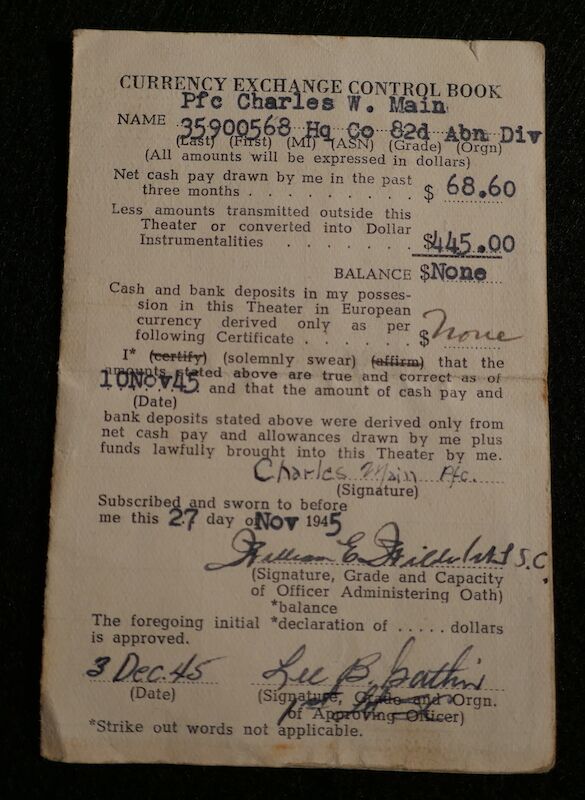 CURRENCY EXCHANGE CONTROL BOOK
Pfc Charles W. Main
NAME 35900568 Hq Co 82d Abn Div
(Last) (First) (MI) (ASN) (Grade) (Orgn)
(All amounts will be expressed in dollars)
Net cash pay drawn by me in the past
three months . . . . . . . . . $ 68.60
Less amounts transmitted outside this
Theater or converted into Dollar
Instrumentalities . . . . . . . $445.00
BALANCE $None
Cash and bank deposits in my posses-
sion in this Theater in European
currency derived only as per
following Certificate . . . . . . $ None
I* (certify) (solemnly swear) (affirm) that the
amounts stated above are true and correct as of
10Nov45 and that the amount of cash pay and
(Date)
bank deposits stated above were derived only from
net cash pay and allowances drawn by me plus
funds lawfully brought into this Theater by me.
Charles Main Pfc.
(Signature)
Subscribed and sworn to before
me this 27 day of Nov 1945
William E.
(Signature, Grade and Capacity
of Officer Administering Oath)
*balance
The foregoing initial *declaration of . . . . . dollars
is approved.
3 Dec. 45 Lee B.
(Date) (Signature, Grade and Orgn.
of Approving Officer)
*Strike out words not applicable.